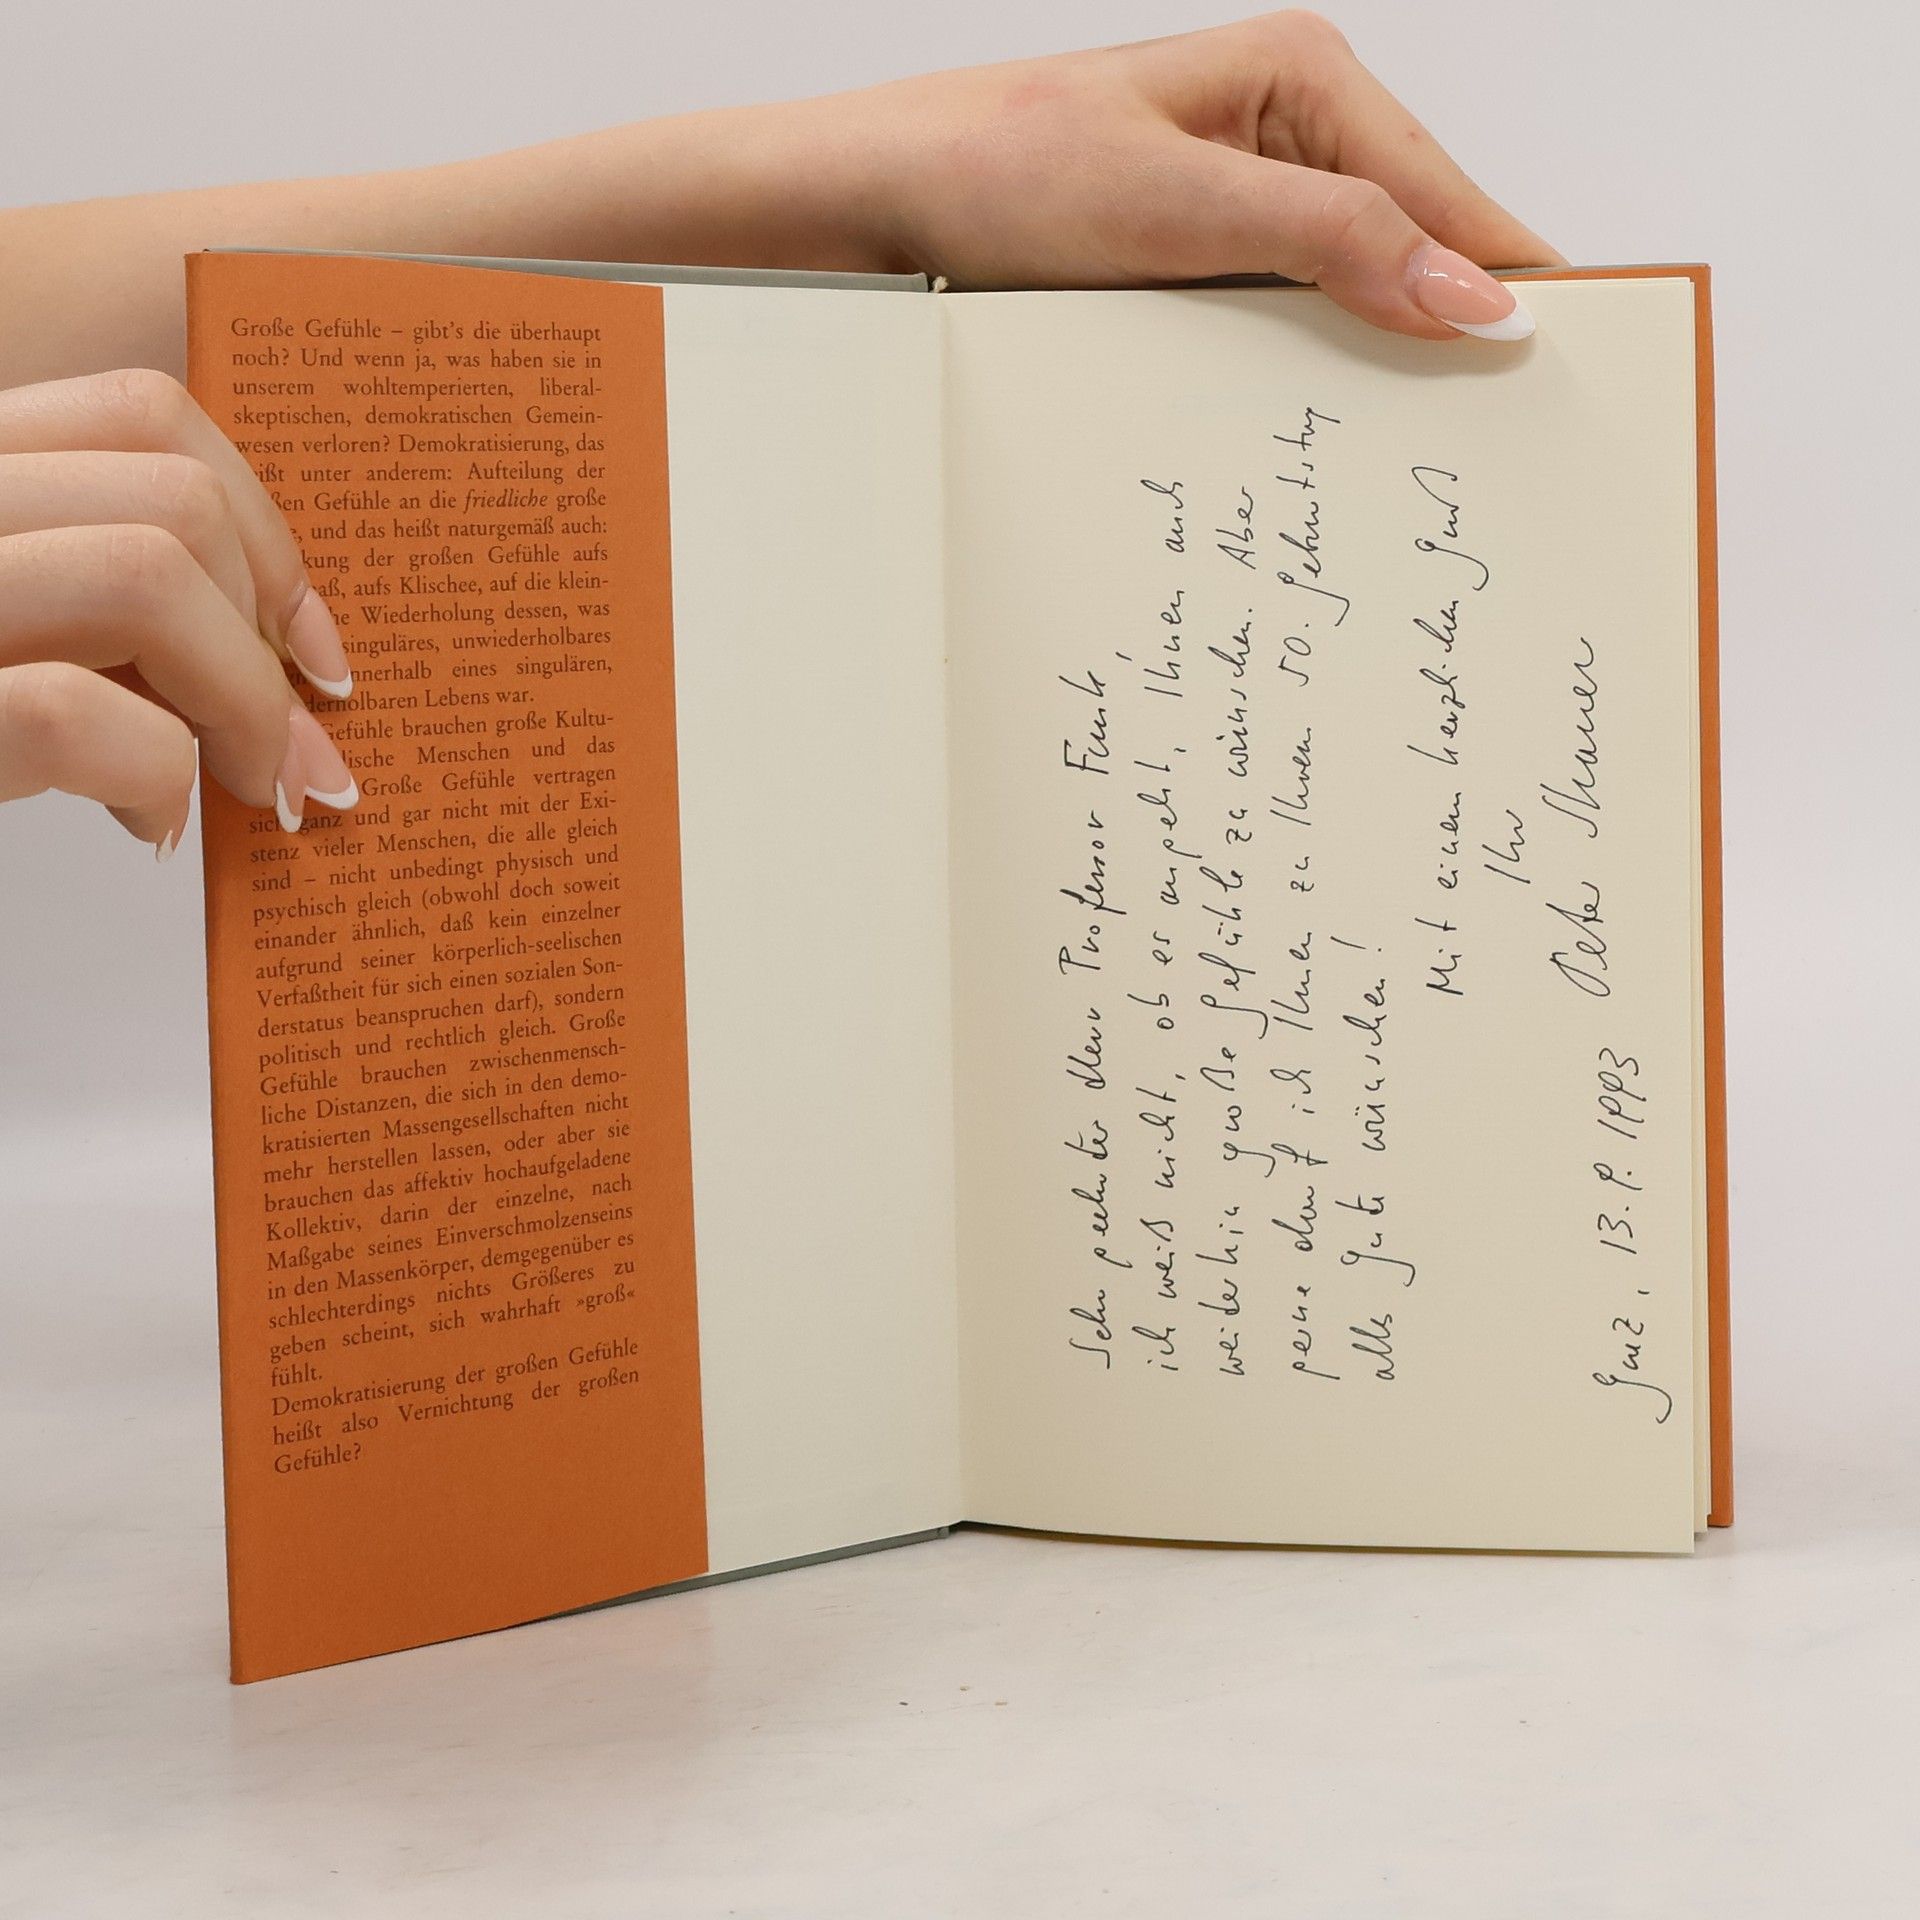 Große Gefühle – gibt's die überhaupt
noch? Und wenn ja, was haben sie in
unserem wohltemperierten, liberal-
skeptischen, demokratischen Gemein-
wesen verloren? Demokratisierung, das
ißt unter anderem: Aufteilung der
ßen Gefühle an die friedliche große
, und das heißt naturgemäß auch:
kung der großen Gefühle aufs
aß, aufs Klischee, auf die klein-
he Wiederholung dessen, was
singuläres, unwiederholbares
nnerhalb eines singulären,
derholbaren Lebens war.
Gefühle brauchen große Kultu-
lische Menschen und das
Große Gefühle vertragen
sich ganz und gar nicht mit der Exi-
stenz vieler Menschen, die alle gleich
sind – nicht unbedingt physisch und
psychisch gleich (obwohl doch soweit
einander ähnlich, daß kein einzelner
aufgrund seiner körperlich-seelischen
Verfaßtheit für sich einen sozialen Son-
derstatus beanspruchen darf), sondern
politisch und rechtlich gleich. Große
Gefühle brauchen zwischenmensch-
liche Distanzen, die sich in den demo-
kratisierten Massengesellschaften nicht
mehr herstellen lassen, oder aber sie
brauchen das affektiv hochaufgeladene
Kollektiv, darin der einzelne, nach
Maßgabe seines Einverschmolzenseins
in den Massenkörper, demgegenüber es
schlechterdings nichts Größeres zu
geben scheint, sich wahrhaft »groß«
fühlt.
Demokratisierung der großen Gefühle
heißt also Vernichtung der großen
Gefühle?
Sehr geehrter Herr Professor Funk,
ich weiß nicht, ob es angeht, Ihnen auch
weiterhin große Gefühle zu wünschen. Aber
gerne darf ich Ihnen zu Ihrem 50. Geburtstag
alles Gute wünschen!
Mit einem herzlichen Gruß
Ihr
Peter Strasser
Graz, 13. 9. 1993